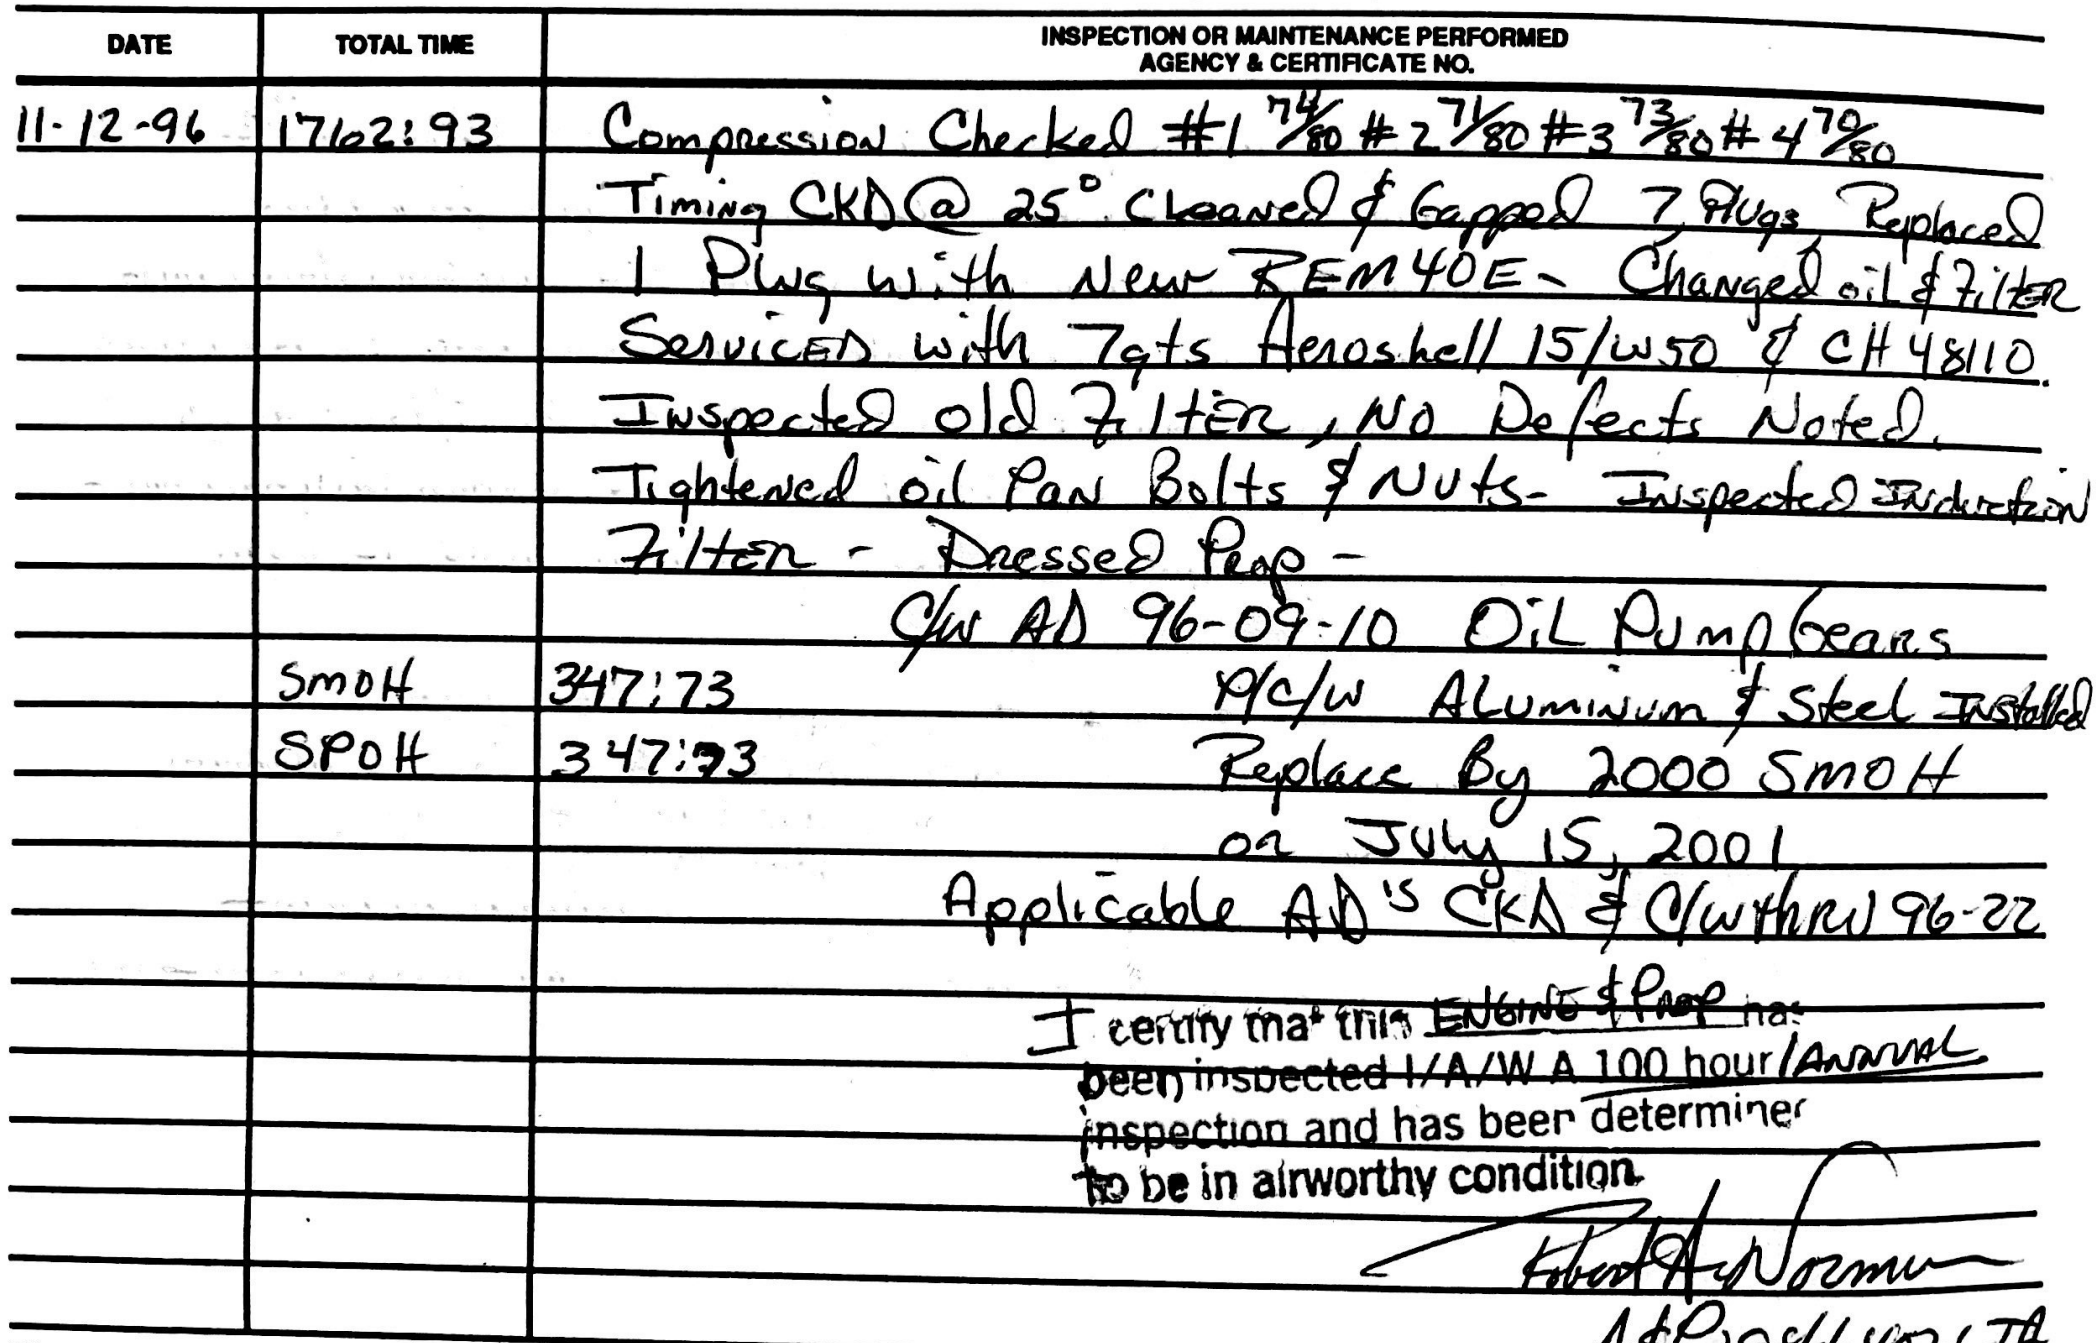 DATE TOTAL TIME INSPECTION OR MAINTENANCE PERFORMED
AGENCY & CERTIFICATE NO.
11-12-96 1762:93 Compression Checked #1 74/80 #2 71/80 #3 73/80 #4 70/80
Timing CKD @ 25° Cleaned & Gapped 7 Plugs, Replaced
1 Plug with New REM40E - Changed oil & Filter
Serviced with 7qts Aeroshell 15/W50 & CH 48110.
Inspected old Filter, No Defects Noted.
Tightened oil Pan Bolts & Nuts - Inspected Induction
Filter - Dressed Prop -
C/W AD 96-09-10 Oil Pump Gears
SMOH 347:73 P/C/W Aluminum & Steel Installed
SPOH 347:73 Replace By 2000 SMOH
or July 15, 2001
Applicable AD's CKD & C/W thru 96-22
I certify that this ENGINE & Prop has
been inspected I/A/W A 100 hour/ANNUAL
inspection and has been determined
to be in airworthy condition.
Robert Norman
A&P IA